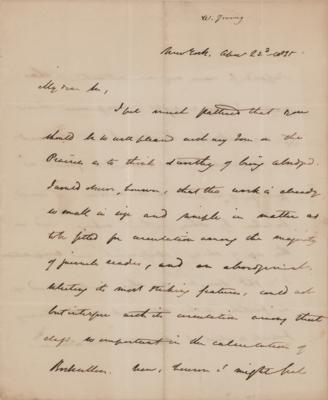 W. Irving
New York, Apr 22ᵈ 1835
My dear Sir,
I feel much flattered that you
should be so well pleased with my Tour on the
Prairies as to think it worthy of being abridged.
I would observe, however, that the work is already
so small in size and simple in matter as
to be fitted for circulation among the majority
of juvenile readers, and an abridgment,
its most striking features, could not
but interfere with its circulation among that
class so important in the calculations of
Booksellers. however I might feel